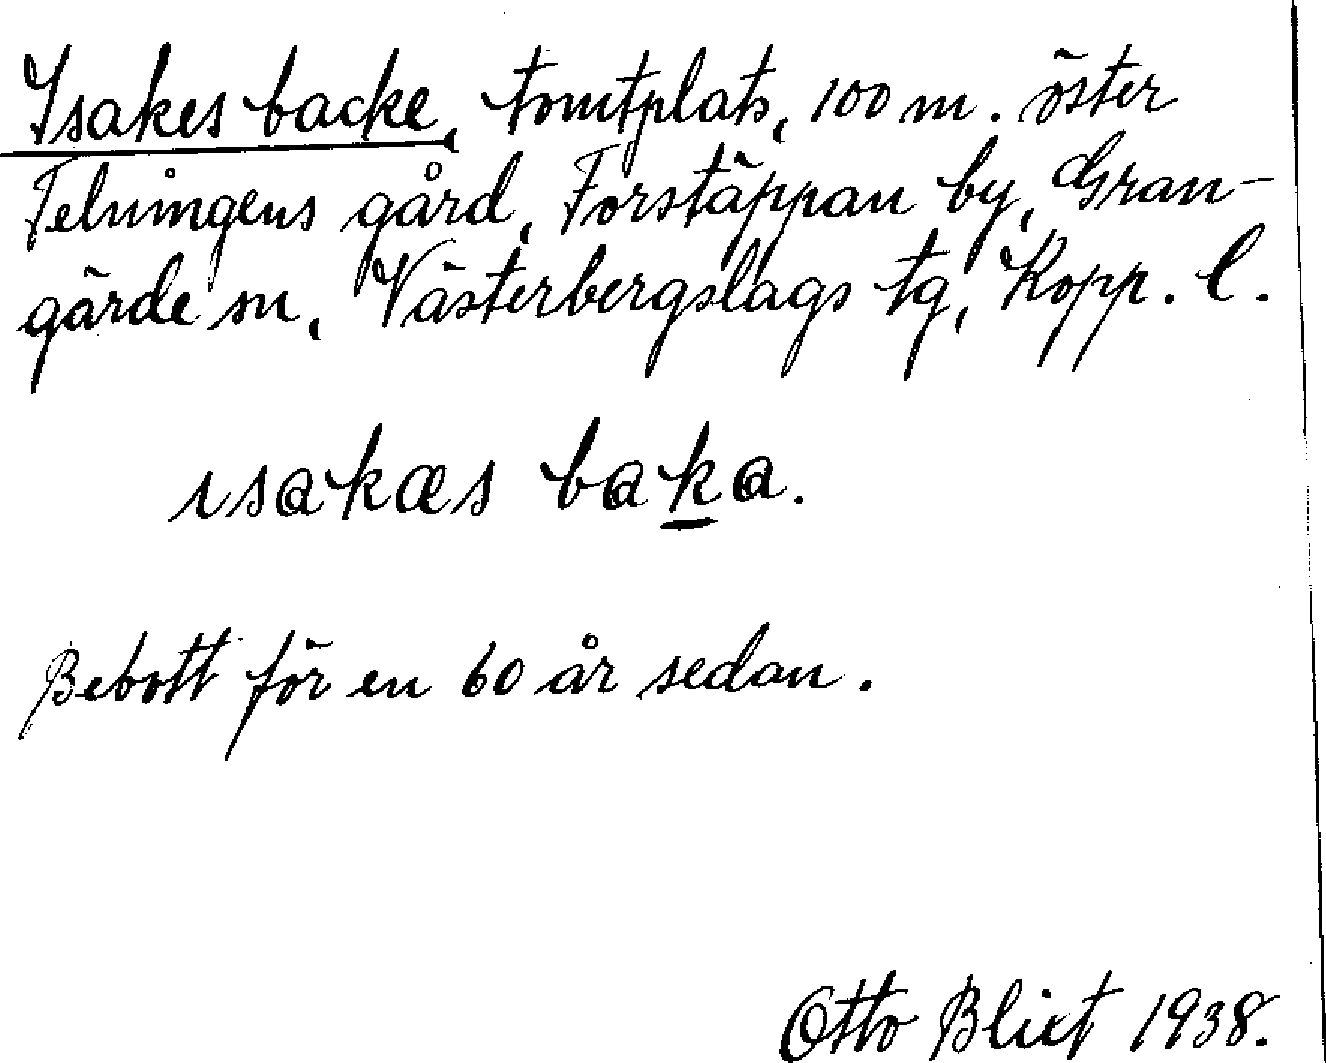 Isakes backe, tomtplats, 100 m. öster
Felningens gård, Forstäppan by, Gran-
gärde sn, Västerbergslags tg, Kopp. l.
ısakæs baka.
Bebott för en 60 år sedan.
Otto Blixt 1938.